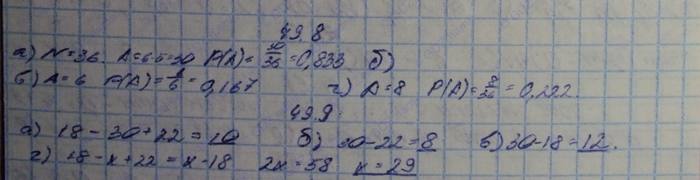 49.8
а) N=36. A=6·5=30 P(A)= 30/36 =0,833 б)
б) A=6 P(A)= 1/6 = 0,167 г) A=8 P(A)= 8/36 = 0,222.
49.9
а) 18-30+22=10 б) 30-22=8 в) 30-18=12.
г) 18-x+22=x-18 2x=58 x=29